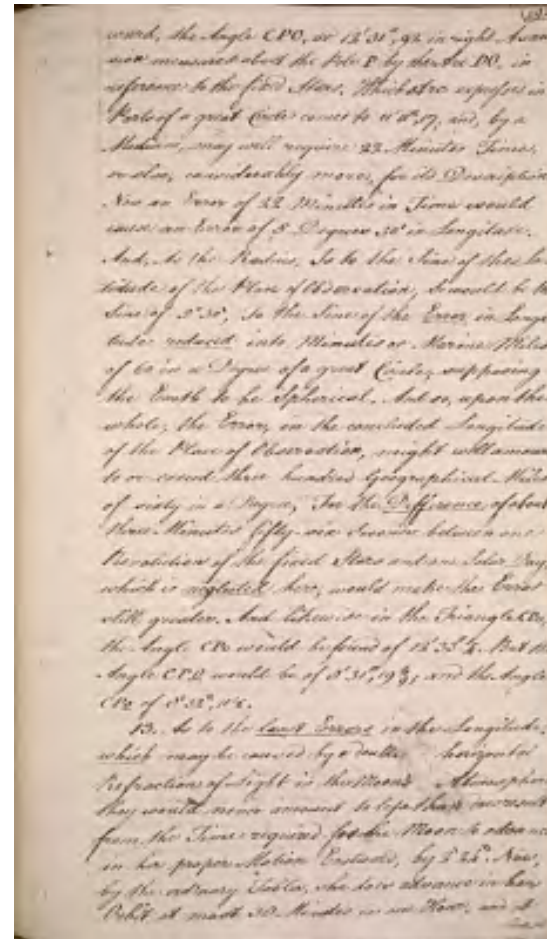 ward, the Angle CPO, or 12' 31", 92 in right Ascen-
sion measured about the Pole P by the Arc DO, in
reference to the fixed Stars. Which Arc expressed in
Parts of a great Circle comes to and, by a
Medium, may well require 22 Minutes Time,
or also, considerably more, for its Description
Now an Error of 22 Minutes in Time would
cause an Error of 5 Degrees 30' in Longitude.
And, As the Radius, So to the Sine of the
of the Place of Observation, So would be the
Sine of 5° 30', to the Sine of the Error in Longi-
tude reduced into Minutes or Marine Miles
of 60 in a Degree of a great Circle, supposing
the Earth to be Spherical. And so, upon the
whole, the Error, in the concluded Longitude
of the Place of Observation, might well amount
to or exceed three hundred Geographical Miles
of sixty in a Degree, For the Difference, of about
three Minutes fifty-six Seconds between one
Revolution of the fixed Stars and one Solar Day,
which is neglected here, would make the Error
still greater. And likewise in the Triangle CPo,
the Angle CPo would be found of But the
Angle would be of and the Angle
of
13. As to the least Errors in the Longitude,
which may be caused by a double horizontal
Refractions of Light in the Moon's Atmosphere
they would never amount to less than
from the Time required for the Moon to advance
in her proper Motion Eastward, by Now,
by the ordinary Tables, she does advance in her
Orbit at most 30 Minutes in an Hour, and at